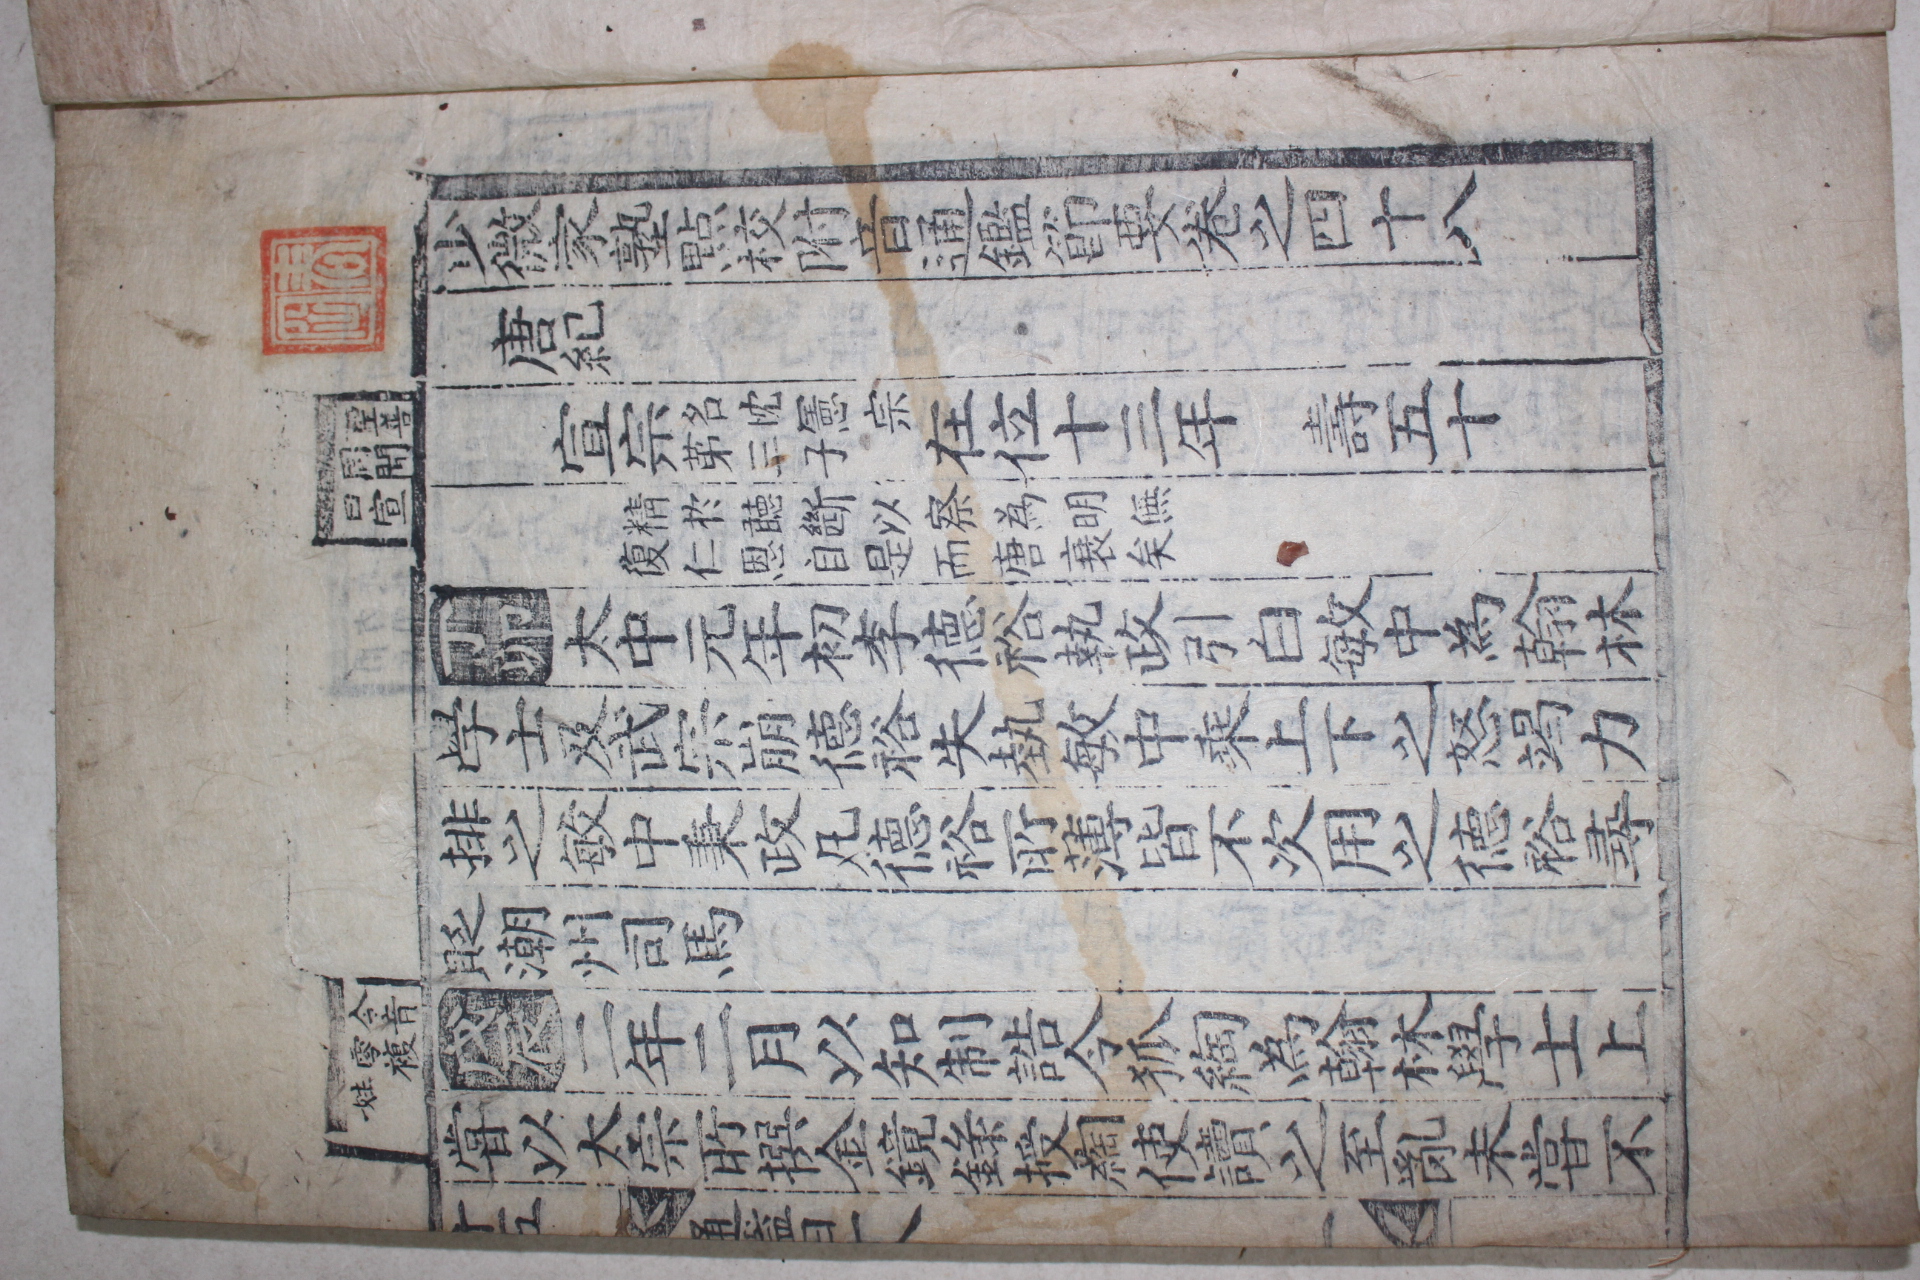 少微家塾點校附音通鑑節要卷之四十八
唐紀
宣宗名忱憲宗第三子在位十三年 壽五十
精於聽斷以察為明無
復仁恩自是而唐衰矣
聖善
周聞
曰宣
丁卯大中元年初李德裕執政引白敏中為翰林
學士及武宗崩德裕失埶敏中乘上下之怒竭力
排之敏中秉政凡德裕所薄皆不次用之德裕尋
貶潮州司馬
令音
零複
姓
戊辰二年二月以知制誥令狐綯為翰林學士上
嘗以太宗所撰金鏡錄授綯使讀之至亂未嘗不